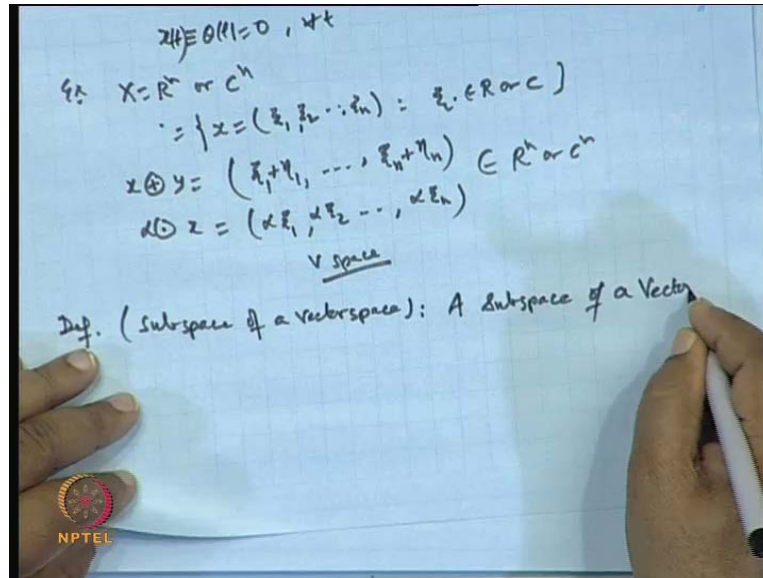 x(t) ≡ θ(t) = 0 , ∀t
Ex X = R^n or C^n
= { x = (ξ_1, ξ_2 ... ξ_n) : ξ_i ∈ R or C }
x ⊕ y = (ξ_1+η_1, ..., ξ_n+η_n) ∈ R^n or C^n
α ⊙ x = (αξ_1, αξ_2 ..., αξ_n)
V space
Def. (Subspace of a vectorspace): A Subspace of a Vector
NPTEL